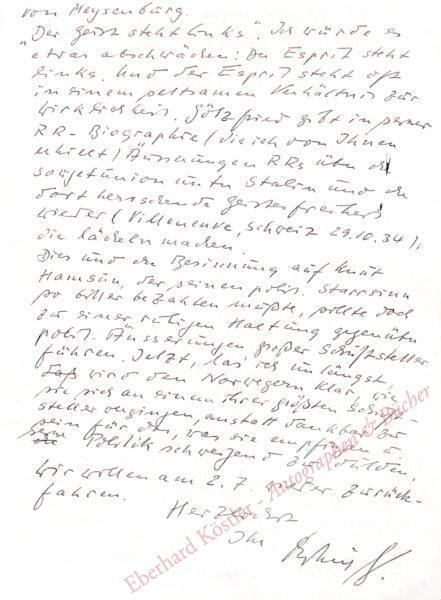 von Meysenburg.
"Der Geist steht links". Ich würde es
etwas abschwächen: Der Esprit steht
links. Und der Esprit steht oft
in einem seltsamen Verhältnis zur
Wirklichkeit. Götzfried gibt in seiner
RR-Biographie (die ich von Ihnen
erhielt) Äusserungen RRs über die
Sowjetunion unter Stalin und die
dort herrschende Geistesfreiheit
wieder (Villeneuve, Schweiz 29.10.34),
die lächeln machen.
Dies und die Besinnung auf Knut
Hamsun, der seinen polit. Starrsinn
so bitter bezahlen mußte, sollte doch
zu einer ruhigen Haltung gegenüber
polit. Äusserungen großer Schriftsteller
führen. Jetzt, las ich unlängst,
wird den Norwegern klar, wie
sie sich an einem ihrer größten Schrift-
steller vergingen, anstatt dankbar zu
sein für das, was sie empfingen u.
Politik schweigend zu dulden.
Wir wollen am 2.7. zurück-
fahren.
Herzlichst
Ihr
Eberhard Köstler - Autographen & Bücher